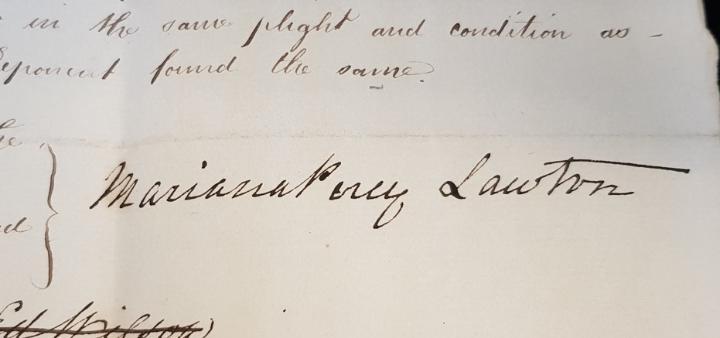 in the same plight and condition as –
eponent found the same.
Mariana Percy Lawton
Ed Wilson